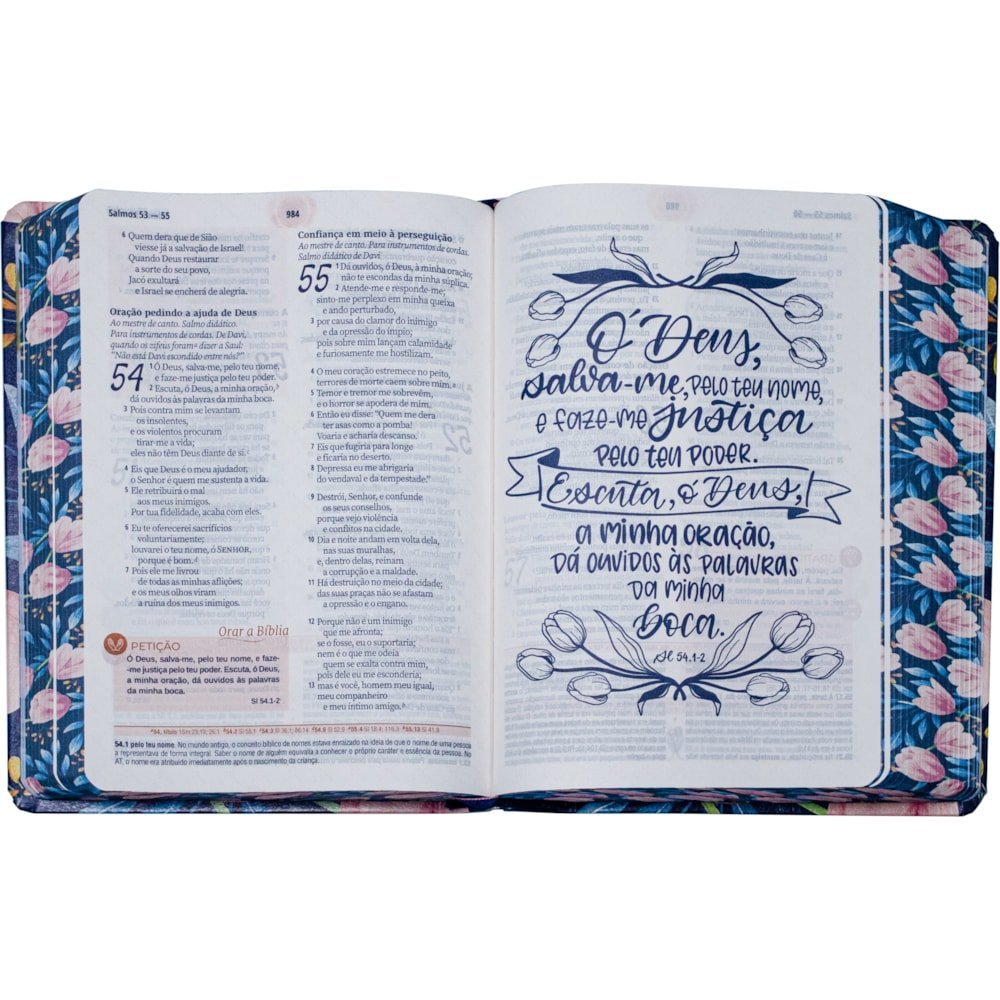 Salmos 53 — 55
984
6 Quem dera que de Sião
viesse já a salvação de Israel!
Quando Deus restaurar
a sorte do seu povo,
Jacó exultará
e Israel se encherá de alegria.
Oração pedindo a ajuda de Deus
Ao mestre de canto. Salmo didático.
Para instrumentos de cordas. De Davi,
quando os zifeus foram dizer a Saul:
"Não está Davi escondido entre nós?"
54 1 Ó Deus, salva-me, pelo teu nome,
e faze-me justiça pelo teu poder.
2 Escuta, ó Deus, a minha oração,
dá ouvidos às palavras da minha boca.
3 Pois contra mim se levantam
os insolentes,
e os violentos procuram
tirar-me a vida;
eles não têm Deus diante de si.
4 Eis que Deus é o meu ajudador,
o Senhor é quem me sustenta a vida.
5 Ele retribuirá o mal
aos meus inimigos.
Por tua fidelidade, acaba com eles.
6 Eu te oferecerei sacrifícios
voluntariamente;
louvarei o teu nome, ó SENHOR,
porque é bom.
7 Pois ele me livrou
de todas as minhas aflições;
e os meus olhos viram
a ruína dos meus inimigos.
Orar a Bíblia
PETIÇÃO
Ó Deus, salva-me, pelo teu nome, e faze-
-me justiça pelo teu poder. Escuta, ó Deus,
a minha oração, dá ouvidos às palavras
da minha boca.
Sl 54.1-2
Confiança em meio à perseguição
Ao mestre de canto. Para instrumentos de cordas.
Salmo didático de Davi
55 1 Dá ouvidos, ó Deus, à minha oração;
não te escondas da minha súplica.
2 Atende-me e responde-me;
sinto-me perplexo em minha queixa
e ando perturbado,
3 por causa do clamor do inimigo
e da opressão do ímpio;
pois sobre mim lançam calamidade
e furiosamente me hostilizam.
4 O meu coração estremece no peito,
terrores de morte caem sobre mim.
5 Temor e tremor me sobrevêm,
e o horror se apodera de mim.
6 Então eu disse: "Quem me dera
ter asas como a pomba!
Voaria e acharia descanso.
7 Eis que fugiria para longe
e ficaria no deserto.
8 Depressa eu me abrigaria
do vendaval e da tempestade."
9 Destrói, Senhor, e confunde
os seus conselhos,
porque vejo violência
e conflitos na cidade.
10 Dia e noite andam em volta dela,
nas suas muralhas,
e, dentro delas, reinam
a corrupção e a maldade.
11 Há destruição no meio da cidade;
das suas praças não se afastam
a opressão e o engano.
12 Porque não é um inimigo
que me afronta;
se o fosse, eu o suportaria;
nem é o que me odeia
quem se exalta contra mim,
pois dele eu me esconderia;
13 mas é você, homem meu igual,
meu companheiro
e meu íntimo amigo.
54.1 pelo teu nome. No mundo antigo, o conceito bíblico de nomes estava enraizado na ideia de que o nome de uma pessoa
a representava de forma integral. Saber o nome de alguém equivalia a conhecer o próprio caráter e essência da pessoa. No
AT, o nome era atribuído imediatamente após o nascimento da criança.
Ó Deus,
salva-me, pelo teu nome,
e faze-me justiça
pelo teu poder.
Escuta, ó Deus,
a minha oração,
dá ouvidos às palavras
da minha
boca.
Sl 54.1-2